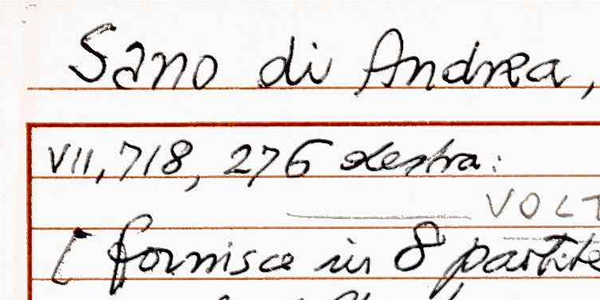 Sano di Andrea,
VII, 718, 276 destra:
VOLT
[ fornisce in 8 partite